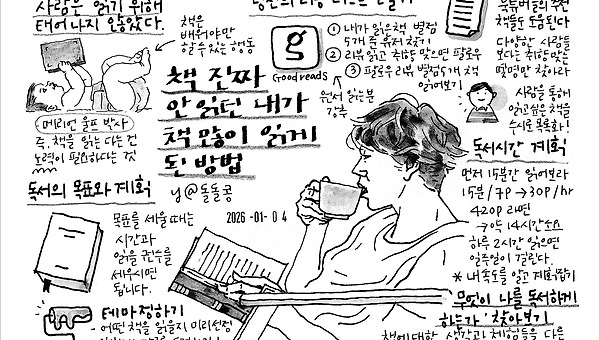 사람은 읽기 위해
태어나지 않았다.
책은
배워야만
할 수 있는 행동
메리언 울프 박사
즉, 책을 읽는 다는 건
노력이 필요하다는 것
독서의 목표와 계획
목표를 세울 때는
시간과
읽을 권수를
세우시면
됩니다.
테마정하기
- 어떤 책을 읽을지 미리선정
g
Goodreads
① 내가 읽은책 별점
5개 준 유저 찾기
② 리뷰 읽고 취향 맞으면 팔로우
③ 팔로우 리뷰 별점 5개 책
읽어보기
원서 읽는 분
강추
책 진짜
안 읽던 내가
책 많이 읽게
된 방법
by @돌돌콩
2026 -01- 04
북튜버들의 추천
책들도 도움된다
다양한 사람들
보다는 취향 맞는
몇명만 찾아라
사람을 통해
읽고 싶은 책을
수시로 목록화!
독서시간 계획
먼저 15분간 읽어보라
15분 / 7P → 30P / hr
420P 라면
→ 약 14시간 소요
하루 2시간 읽으면
일주일이 걸린다.
* 내 속도를 알고 계획잡기
무엇이 나를 독서하게
하는가 찾아보기
책에 대한 생각과 체험들을 다른